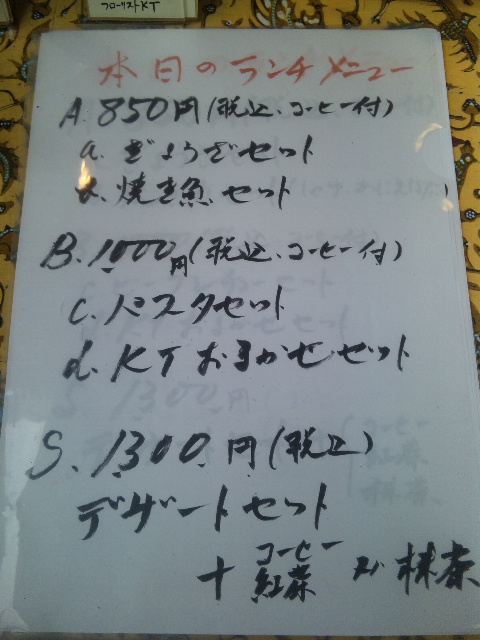 フローリストKT
本日のランチメニュー
A. 850円(税込、コーヒー付)
a. ぎょうざセット
b. 焼き魚セット
B. 1000円(税込、コーヒー付)
c. パスタセット
d. KTおまかせセット
S. 1300円(税込)
デザートセット
+ コーヒー
紅茶 又ハ 抹茶